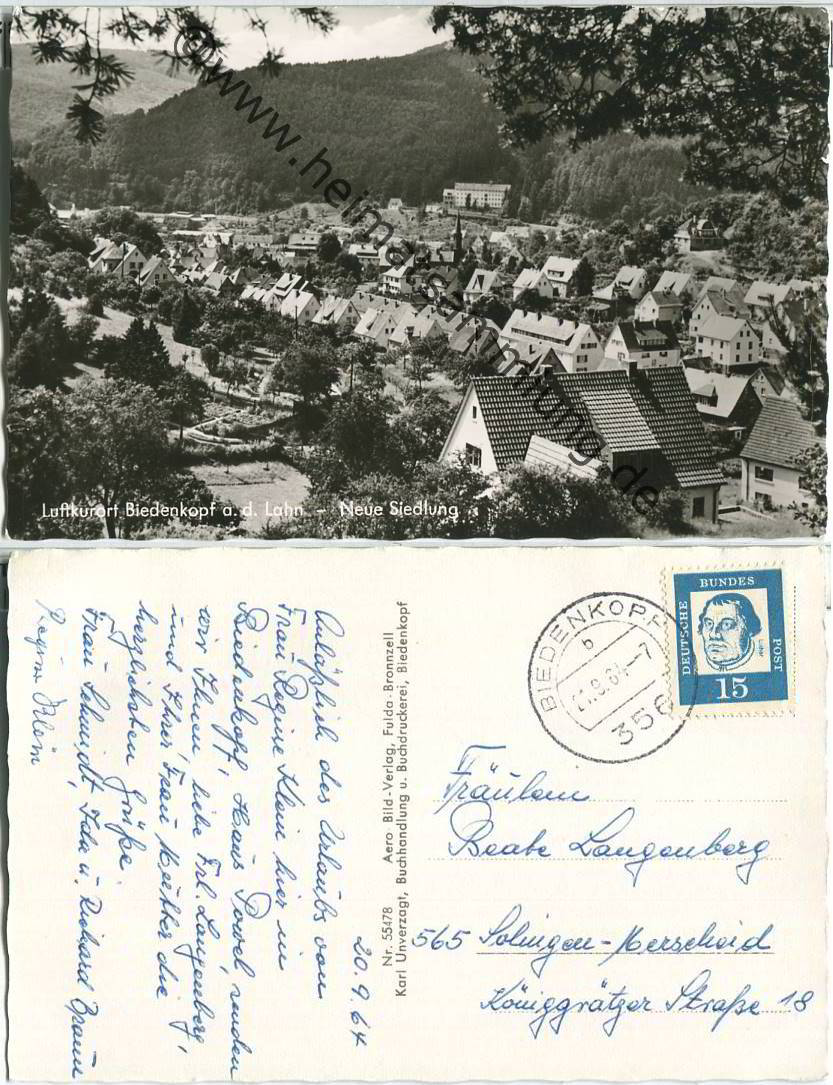 © www.heimatsammlung.de
Luftkurort Biedenkopf a. d. Lahn – Neue Siedlung
20.9.64
Anläßlich des Urlaubs von
Frau Regine Klein hier in
Biedenkopf, Haus Powel, senden
wir Ihnen, liebe Frl. Langenberg,
und Ihrer Frau Mutter die
herzlichsten Grüße.
Frau Schmidt, Ida u. Richard Braun
Regine Klein
Nr. 55478 Aero-Bild-Verlag, Fulda-Bronnzell
Karl Unverzagt, Buchhandlung u. Buchdruckerei, Biedenkopf
BIEDENKOPF
b
21.9.64-7
356
DEUTSCHE
BUNDES
POST
Luther
15
Fräulein
Beate Langenberg
565 Solingen-Merscheid
Königgrätzer Straße 18